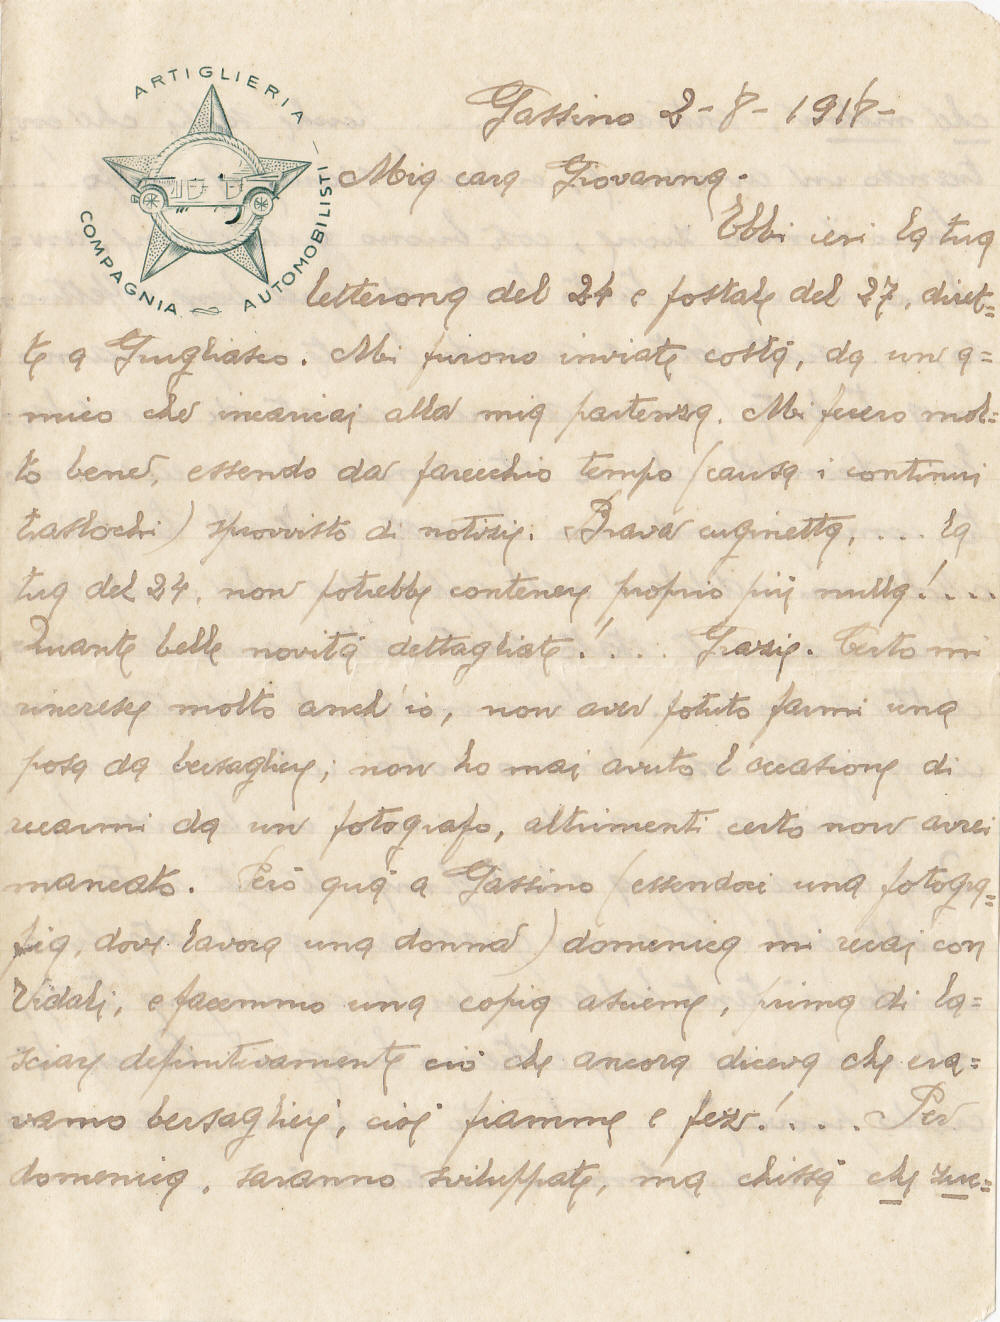 ARTIGLIERIA
COMPAGNIA AUTOMOBILISTI
Gassino 2-8-1918-
Mia cara Giovanna.
Ebbi ieri la tua
letterona del 24 e postale del 27, diret=
te a Grugliasco. Mi furono inviate costà, da un a=
mico che incaricai alla mia partenza. Mi fecero mol=
to bene, essendo da parecchio tempo (causa i continui
traslochi) sprovvisto di notizie. Brava cuginetta,.... la
tua del 24, non potrebbe contenere proprio più nulla!....
Quante belle novità dettagliate!.... Grazie. Certo mi
rincresce molto anch'io, non aver potuto farmi una
posa da bersagliere; non ho mai avuto l'occasione di
recarmi da un fotografo, altrimenti certo non avrei
mancato. Però quà a Gassino (essendoci una fotogra=
fia, dove lavora una donna) domenica mi recai con
Vidali, e facemmo una copia assieme, prima di la=
sciare definitivamente ciò che ancora diceva che era=
vamo bersaglieri, cioè fiamme e fez!.... Per
domenica, saranno sviluppate, ma chissà che zuc=